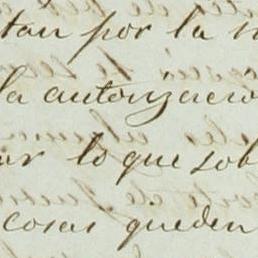 tan por la
la autorizacio
ar lo que sob
cosas queden